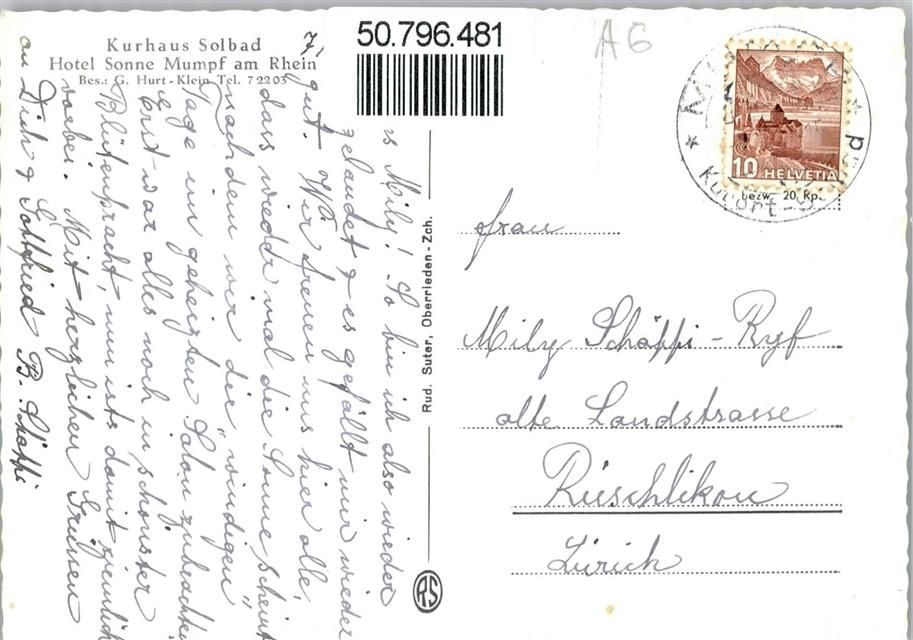 Kurhaus Solbad
Hotel Sonne Mumpf am Rhein
Bes.: G. Hurt-Klein Tel. 7 22 03
50.796.481
A6
10 HELVETIA
bezw. 20 Rp.
Kurort
Rud. Suter, Oberrieden-Zch.
RS
Frau
Mily Schäppi-Ryf
alte Landstrasse
Rüschlikon
Zürich
s Mily! So bin ich also wieder
gelandet & es gefällt mir wieder
gut. Wir freuen uns hier alle,
dass wieder mal die Sonne scheint
nachdem wir die "windigen"
Tage im geheizten Salon zubrachten
Erst war alles noch in schönster
Blütenpracht, nun ists damit ziemlich
vorbei. Mit herzlichen Grüssen
an Dich & Gottfried B. Schäppi